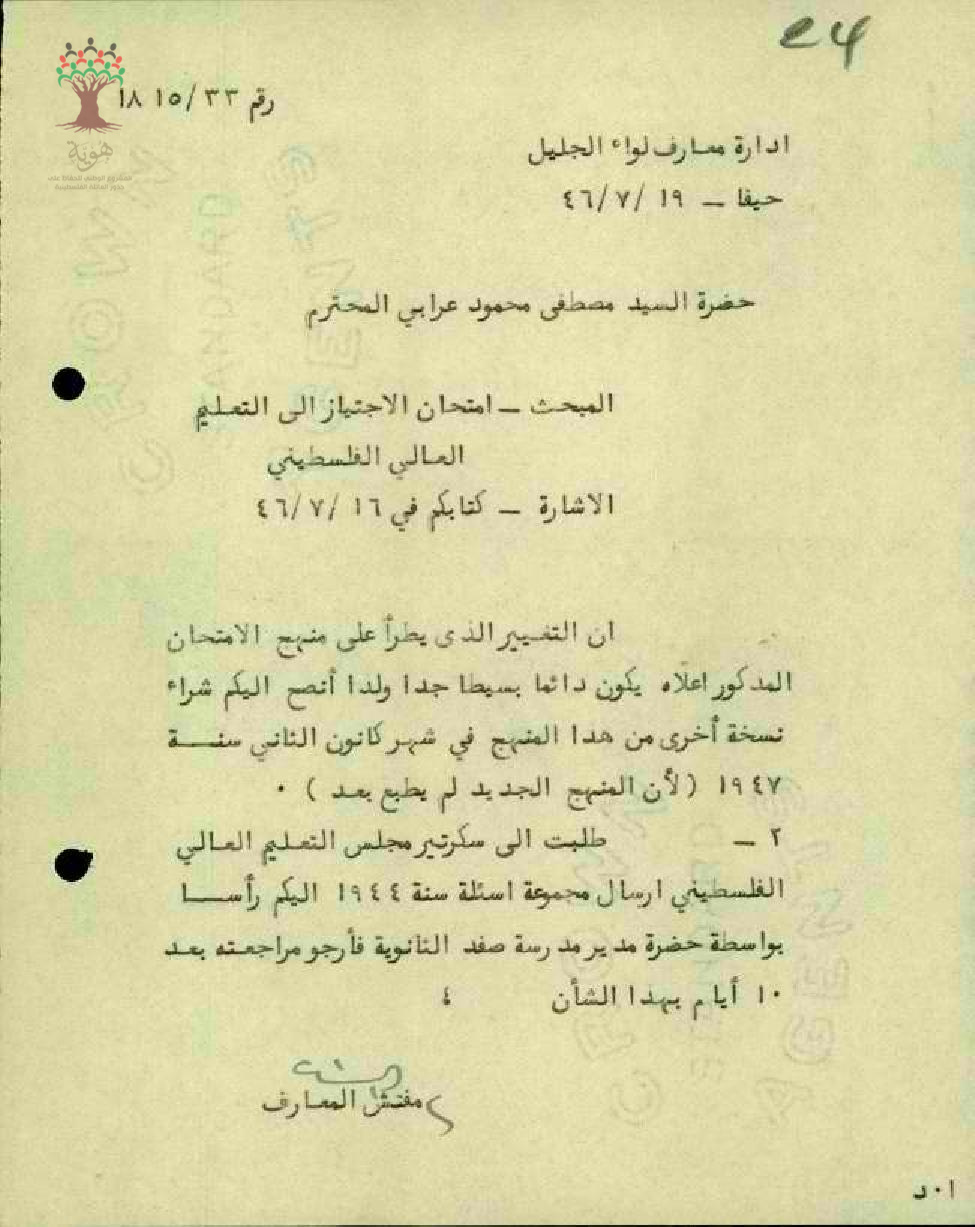 24
رقم ٣٣/ ١٥ ١٨
هوية
المشروع الوطني للحفاظ على
جذور العائلة الفلسطينية
ادارة معارف لواء الجليل
حيفا — ١٩ /٧ /٤٦
حضرة السيد مصطفى محمود عرابي المحترم
المبحث — امتحان الاجتياز الى التعليم
العالي الفلسطيني
الاشارة — كتابكم في ١٦ /٧ /٤٦
ان التغيير الذى يطرأ على منهج الامتحان
المدكور اعلاه يكون دائما بسيطا جدا ولدا أنصح اليكم شراء
نسخة أخرى من هدا المنهج في شهر كانون الثاني سنة
١٩٤٧ (لأن المنهج الجديد لم يطبع بعد ) ٠
٢ — طلبت الى سكرتير مجلس التعليم العالي
الفلسطيني ارسال مجموعة اسئلة سنة ١٩٤٤ اليكم رأسا
بواسطة حضرة مدير مدرسة صفد الثانوية فأرجو مراجعته بعد
١٠ أيام بهدا الشأن ٤
مفتش المعارف
ا٠د